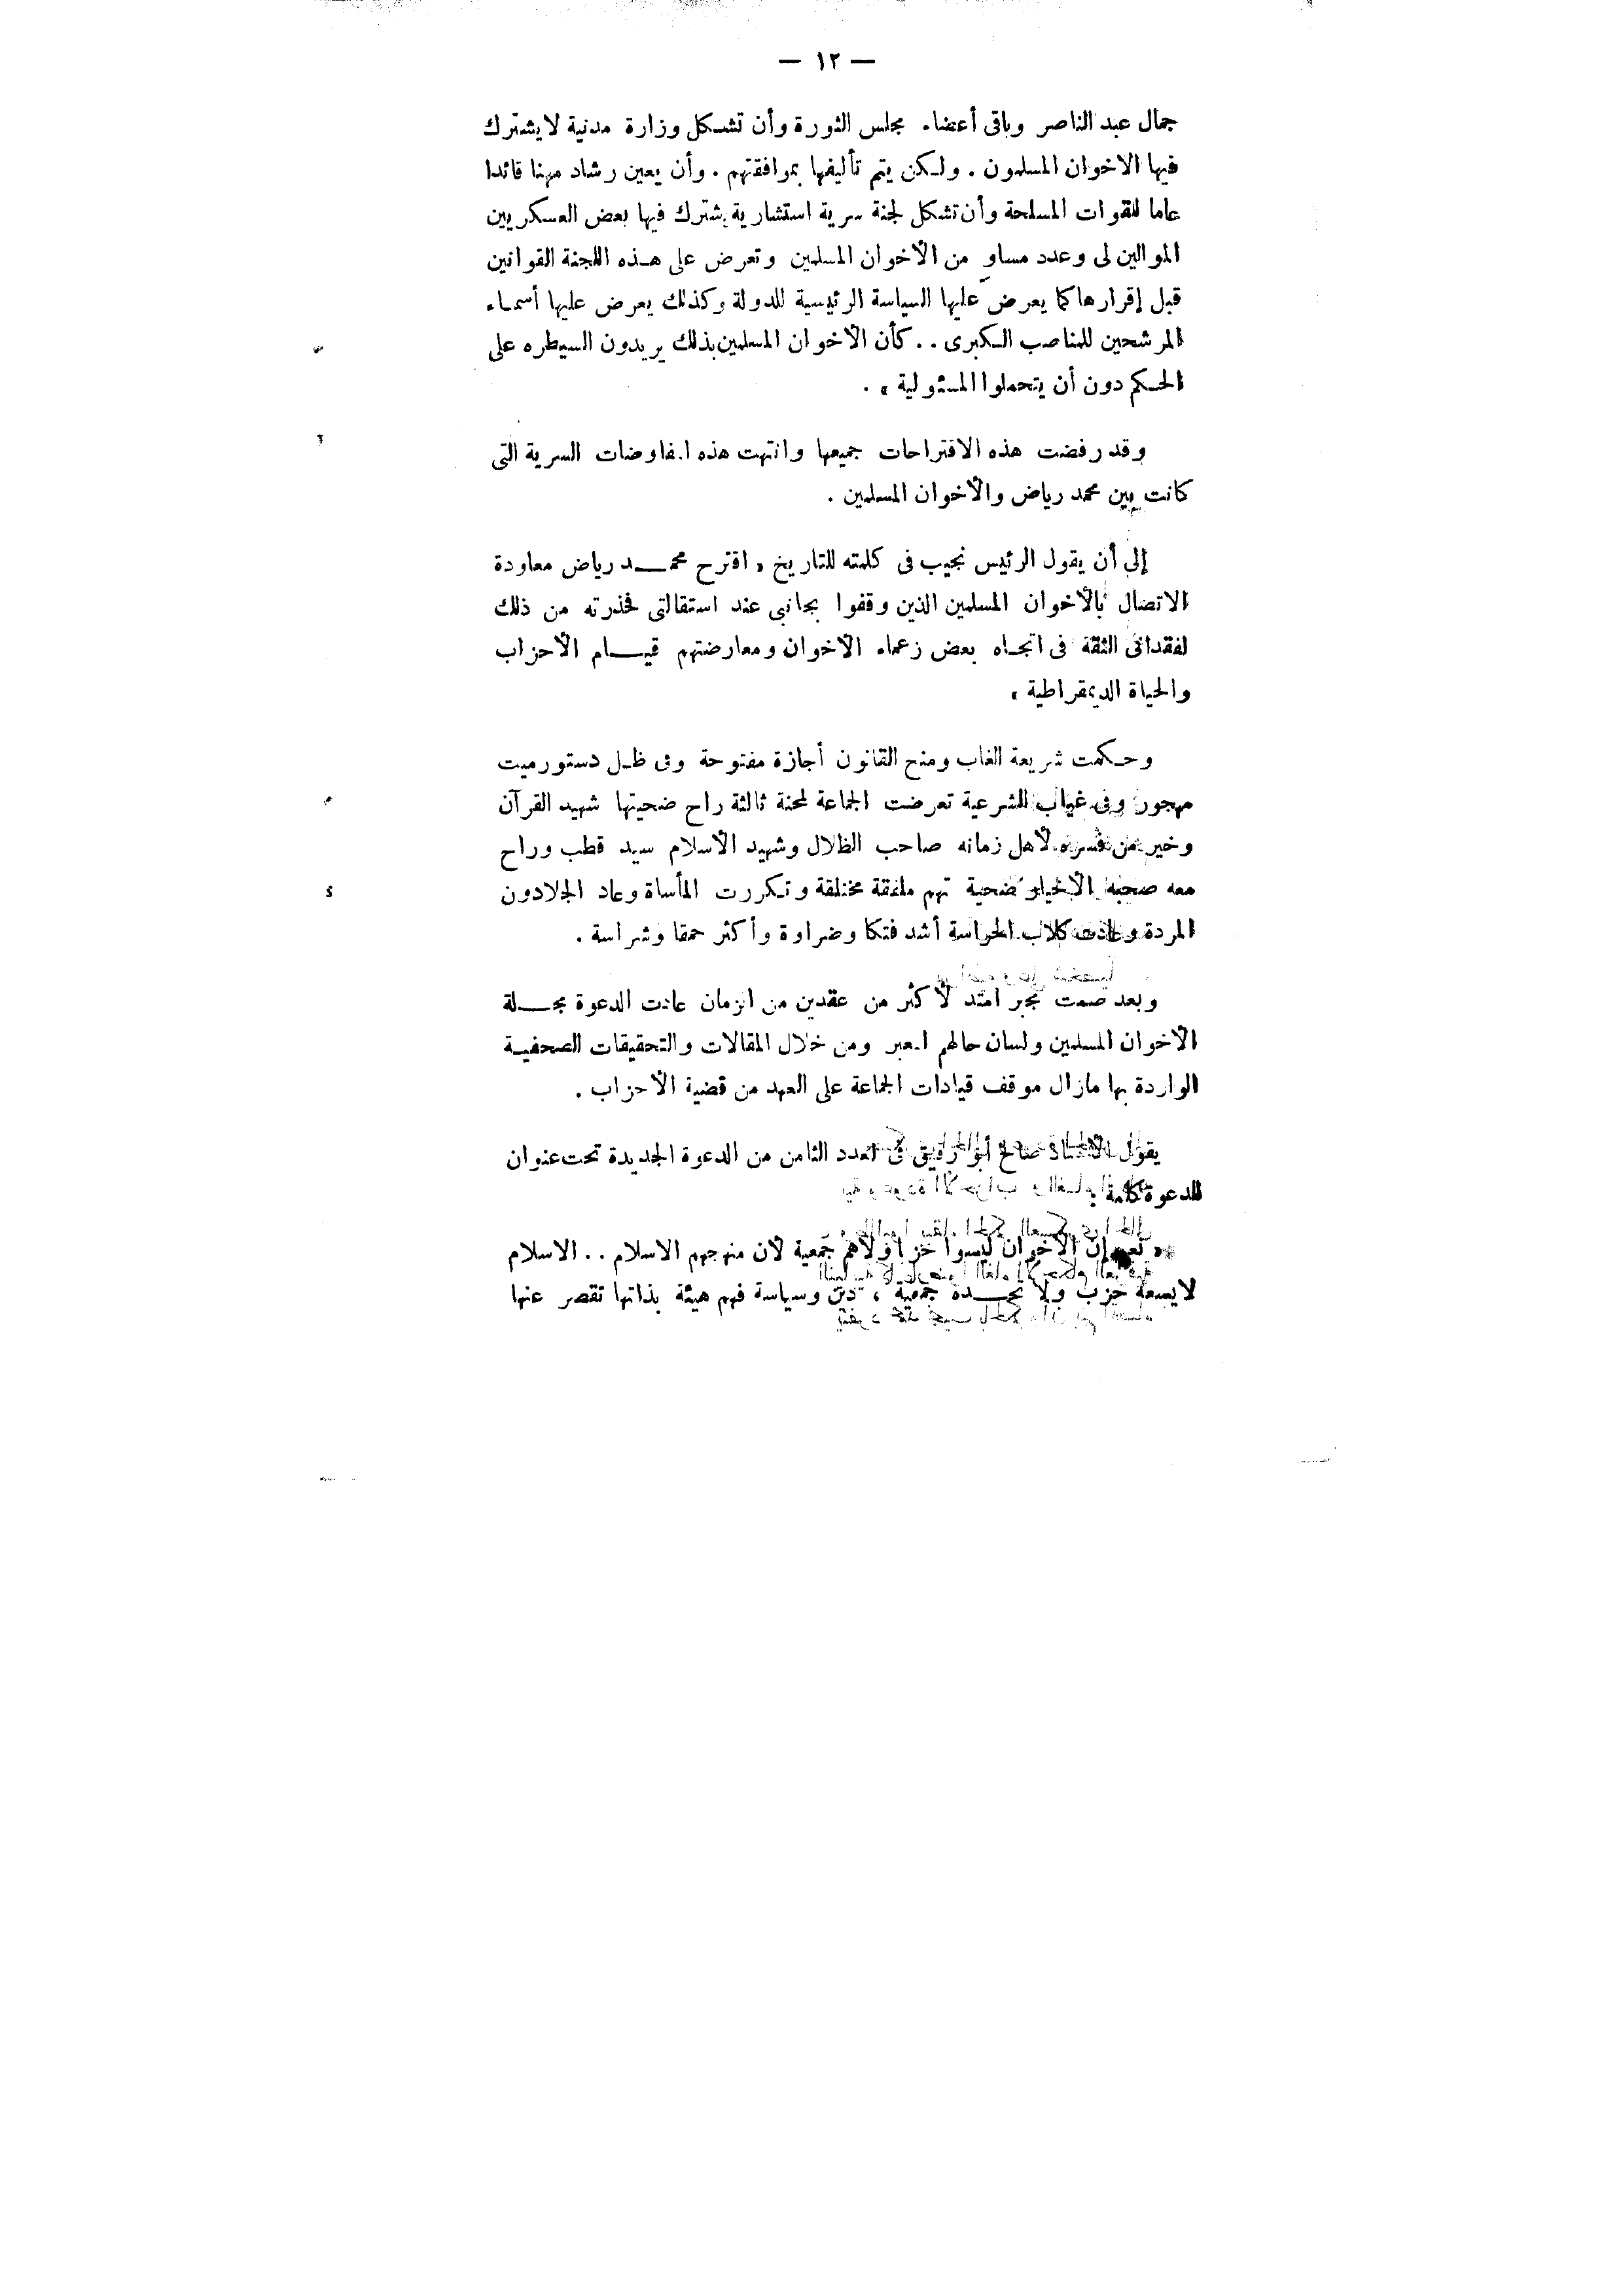 — ١٢ —
جمال عبد الناصر وباقى أعضاء مجلس الثورة وأن تشكل وزارة مدنية لا يشترك
فيها الاخوان المسلمون . ولكن يتم تأليفها بموافقتهم . وأن يعين رشاد مهنا قائدا
عاما للقوات المسلحة وأن تشكل لجنة سرية استشارية يشترك فيها بعض العسكريين
الموالين لى وعدد مساو من الأخوان المسلمين وتعرض على هذه اللجنة القوانين
قبل إقرارها كما يعرض عليها السياسة الرئيسية للدولة وكذلك يعرض عليها أسماء
المرشحين للمناصب الكبرى . . كأن الأخوان المسلمين بذلك يريدون السيطره على
الحكم دون أن يتحملوا المسئولية » .
وقد رفضت هذه الاقتراحات جميعها وانتهت هذه المفاوضات السرية التى
كانت بين محمد رياض والأخوان المسلمين .
إلى أن يقول الرئيس نجيب فى كلمته للتاريخ « اقترح محمد رياض معاودة
الاتصال بالأخوان المسلمين الذين وقفوا بجانبى عند استقالتى فحذرته من ذلك
لفقدانى الثقة فى اتجاه بعض زعماء الاخوان ومعارضتهم قيام الأحزاب
والحياة الديمقراطية »
وحكمت شريعة الغاب ومنح القانون أجازة مفتوحة وفى ظل دستور ميت
مهجور وفى غياب للشرعية تعرضت الجماعة لمحنة ثالثة راح ضحيتها شهيد القرآن
وخير من فسره لأهل زمانه صاحب الظلال وشهيد الأسلام سيد قطب وراح
معه صحبة الأخيار ضحية تهم ملفقة مختلقة وتكررت المأساة وعاد الجلادون
المردة وعادت كلاب الحراسة أشد فتكا وضراوة وأكثر حمقا وشراسة .
وبعد صمت مجبر امتد لأكثر من عقدين من الزمان عادت الدعوة مجلة
الأخوان المسلمين ولسان حالهم المعبر ومن خلال المقالات والتحقيقات الصحفية
الواردة بها مازال موقف قيادات الجماعة على العهد من قضية الأحزاب .
يقول الأستاذ صالح أبو رقيق فى العدد الثامن من الدعوة الجديدة تحت عنوان
للدعوة كلمة :
« نعم إن الأخوان ليسوا حزبا ولاهم جمعية لأن منهجهم الاسلام . . الاسلام
لا يسعه حزب ولا تحده جمعية ، دين وسياسة فهم هيئة بذاتها تقصر عنها